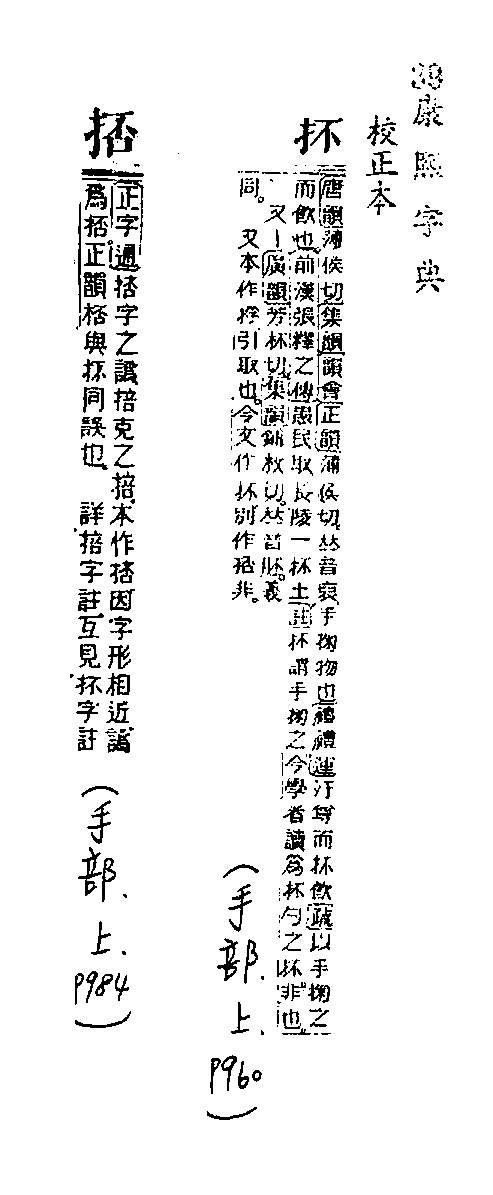 39康熙字典
校正本
抔
唐韻薄侯切集韻韻會正韻蒲侯切𠀤音裒手掬物也禮禮運汙尊而抔飲疏以手掬之
而飲也。前漢張釋之傳愚民取長陵一抔土註抔謂手掬之今學者讀爲杯勺之杯非也。
又丨廣韻芳杯切集韻鋪枚切。𠀤音胚。義
同。又本作捊引取也。今文作抔別作非。
(手部.上.P960)
正字通字之譌掊克之掊本作因字形相近譌
爲正韻與抔同誤也 詳掊字註互見抔字註
(手部.上.P984)